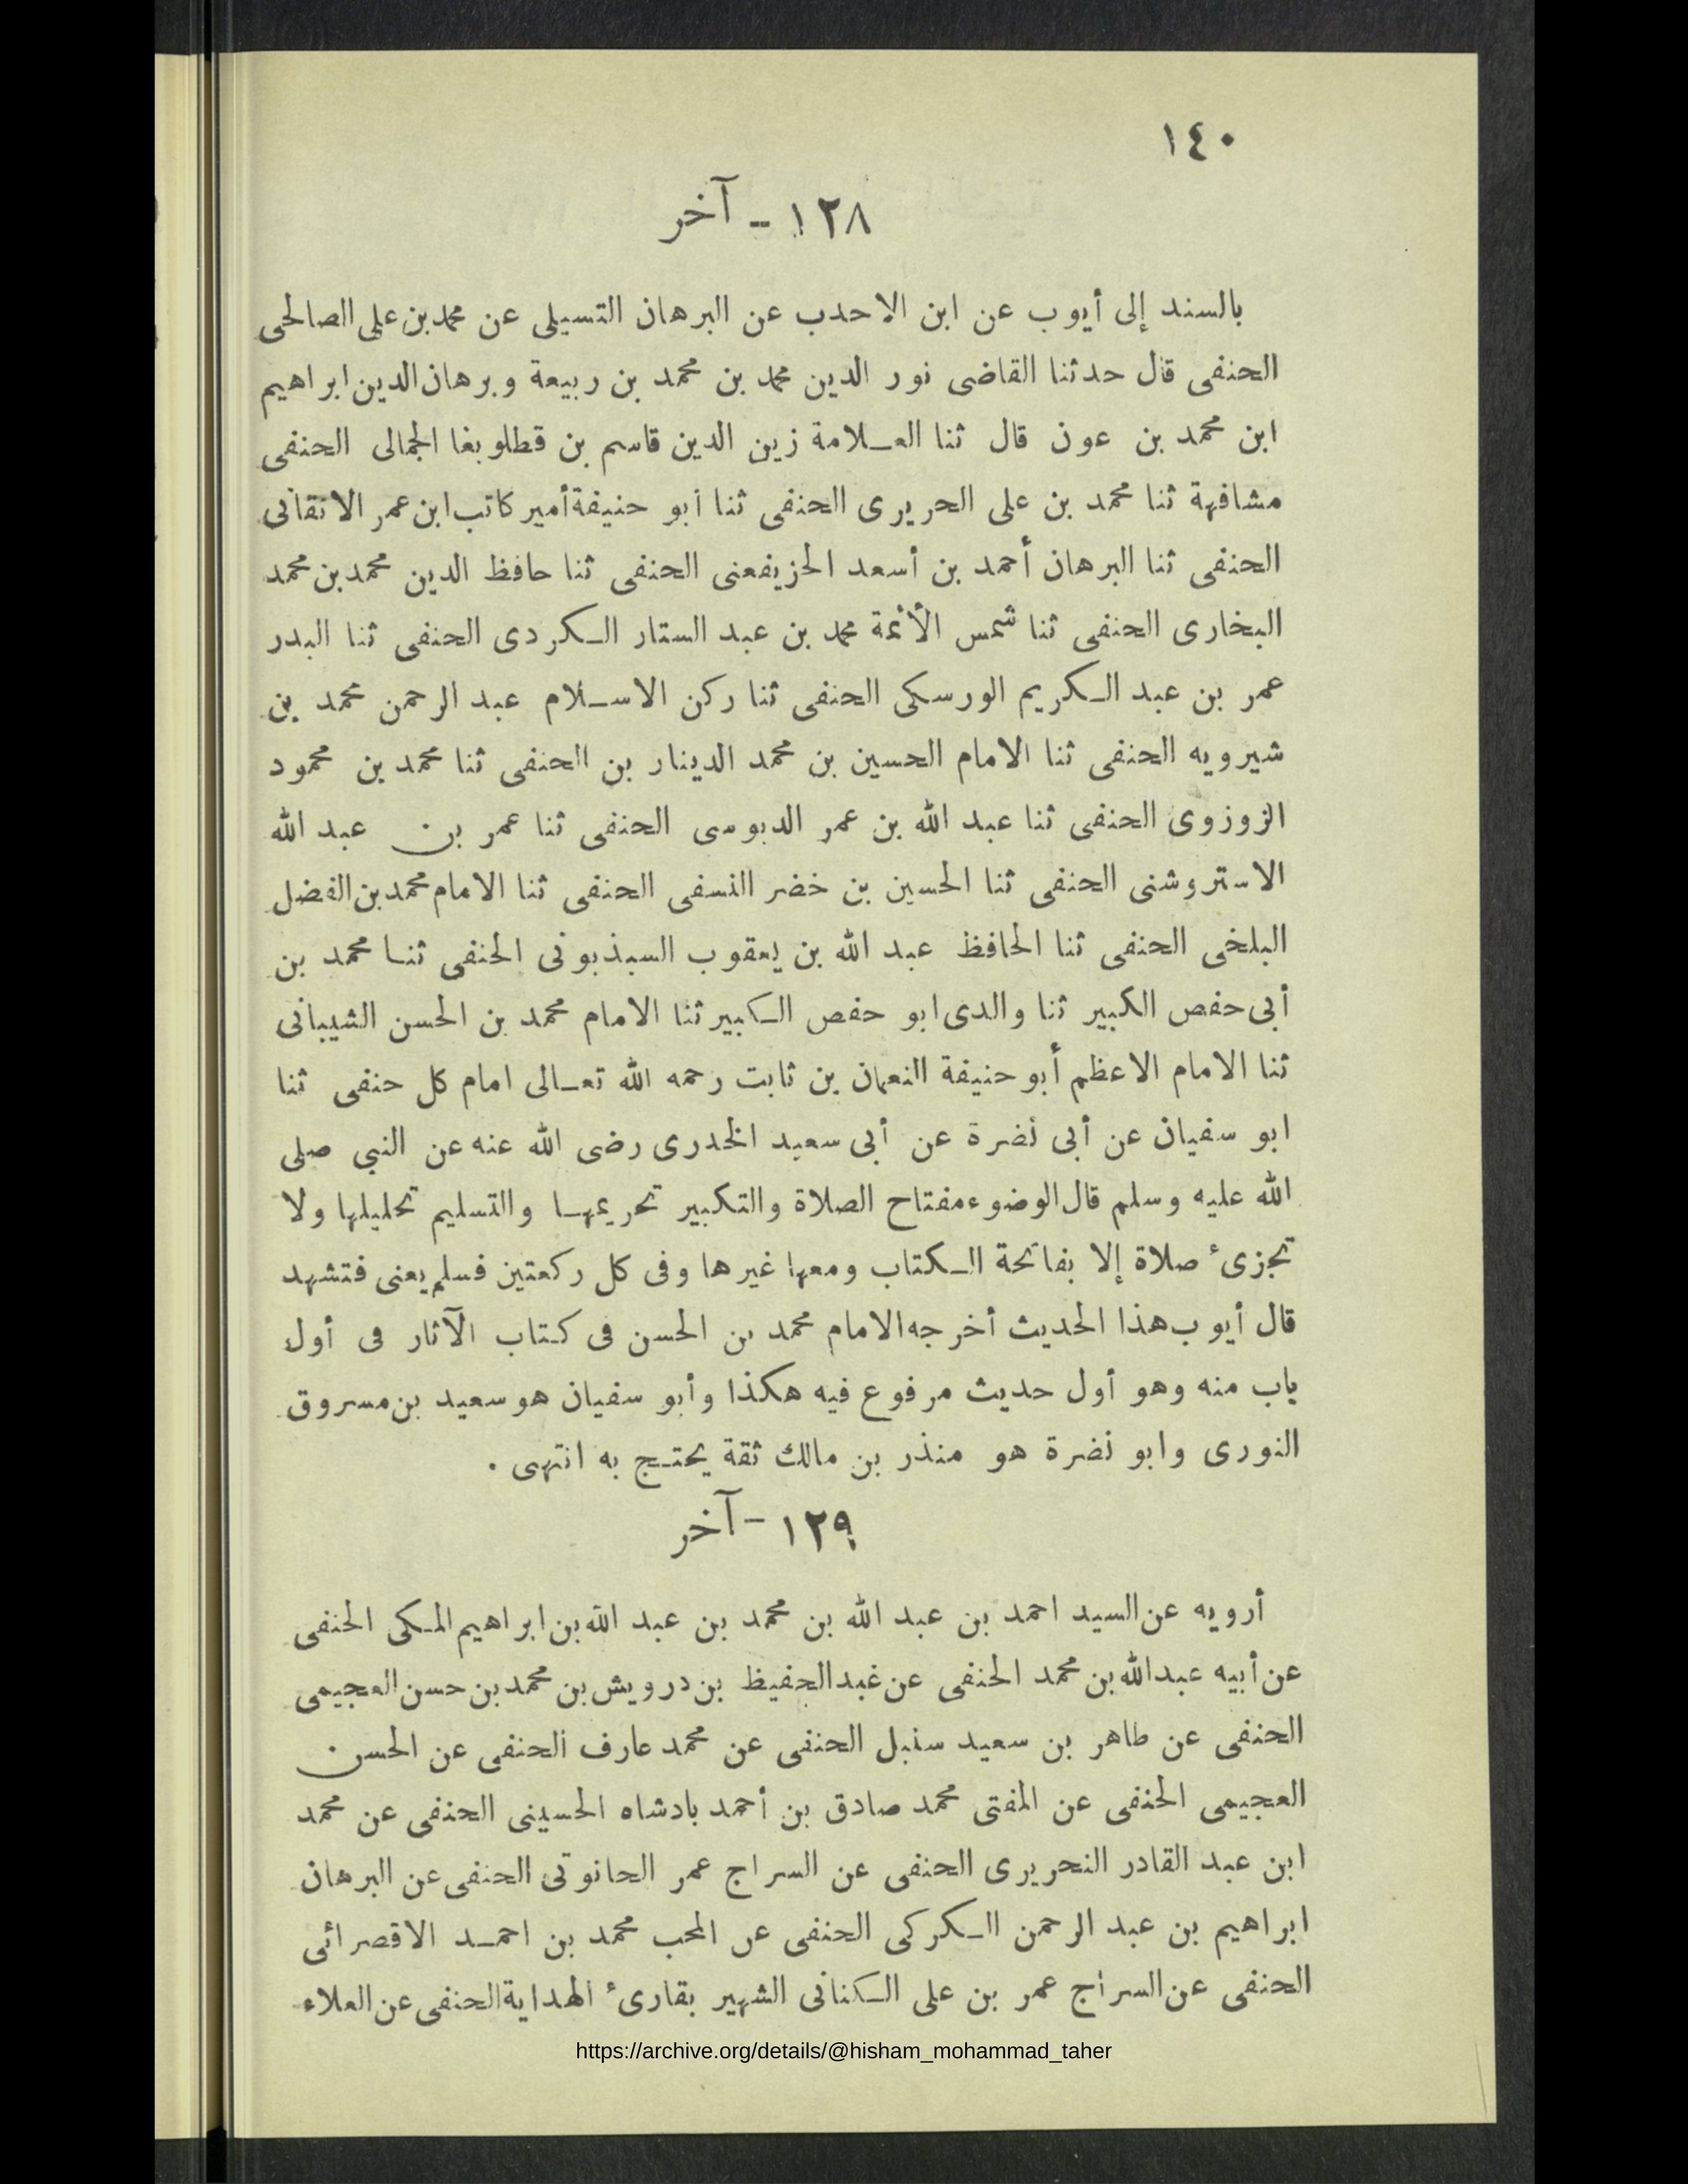 ١٤٠
١٢٨ - آخر
بالسند إلى أيوب عن ابن الاحدب عن البرهان التسيلى عن محمد بن على الصالحى
الحنفى قال حدثنا القاضى نور الدين محمد بن محمد بن ربيعة وبرهان الدين ابراهيم
ابن محمد بن عون قال ثنا العلامة زين الدين قاسم بن قطلوبغا الجمالى الحنفى
مشافهة ثنا محمد بن على الحريرى الحنفى ثنا ابو حنيفة أمير كاتب ابن عمر الاتقانى
الحنفى ثنا البرهان أحمد بن أسعد الخزيفعنى الحنفى ثنا حافظ الدين محمد بن محمد
البخارى الحنفى ثنا شمس الأئمة محمد بن عبد الستار الكردى الحنفى ثنا البدر
عمر بن عبد الكريم الورسكى الحنفى ثنا ركن الاسلام عبد الرحمن محمد بن
شيرويه الحنفى ثنا الامام الحسين بن محمد الدينار بن الحنفى ثنا محمد بن محمود
الزوزوى الحنفى ثنا عبد الله بن عمر الدبوسى الحنفى ثنا عمر بن عبد الله
الاستروشنى الحنفى ثنا الحسين بن خضر النسفى الحنفى ثنا الامام محمد بن الفضل
البلخى الحنفى ثنا الحافظ عبد الله بن يعقوب السبذبونى الحنفى ثنا محمد بن
أبى حفص الكبير ثنا والدى ابو حفص الكبير ثنا الامام محمد بن الحسن الشيبانى
ثنا الامام الاعظم أبو حنيفة النعمان بن ثابت رحمه الله تعالى امام كل حنفى ثنا
ابو سفيان عن أبى نضرة عن أبى سعيد الخدرى رضى الله عنه عن النبي صلى
الله عليه وسلم قال الوضوء مفتاح الصلاة والتكبير تحريمها والتسليم تحليلها ولا
تجزىء صلاة إلا بفاتحة الكتاب ومعها غيرها وفى كل ركعتين فسلم يعنى فتشهد
قال أيوب هذا الحديث أخرجه الامام محمد بن الحسن فى كتاب الآثار فى أول
باب منه وهو أول حديث مرفوع فيه هكذا وأبو سفيان هو سعيد بن مسروق
الثورى وابو نضرة هو منذر بن مالك ثقة يحتج به انتهى .
١٢٩ - آخر
أرويه عن السيد احمد بن عبد الله بن محمد بن عبد الله بن ابراهيم المكى الحنفى
عن أبيه عبد الله بن محمد الحنفى عن عبد الحفيظ بن درويش بن محمد بن حسن العجيمى
الحنفى عن طاهر بن سعيد سنبل الحنفى عن محمد عارف الحنفى عن الحسن
العجيمى الحنفى عن المفتى محمد صادق بن أحمد بادشاه الحسينى الحنفى عن محمد
ابن عبد القادر النحريرى الحنفى عن السراج عمر الحانوتى الحنفى عن البرهان
ابراهيم بن عبد الرحمن الكركى الحنفى عن المحب محمد بن احمد الاقصرائى
الحنفى عن السراج عمر بن على الكنانى الشهير بقارىء الهداية الحنفى عن العلاء
https://archive.org/details/@hisham_mohammad_taher